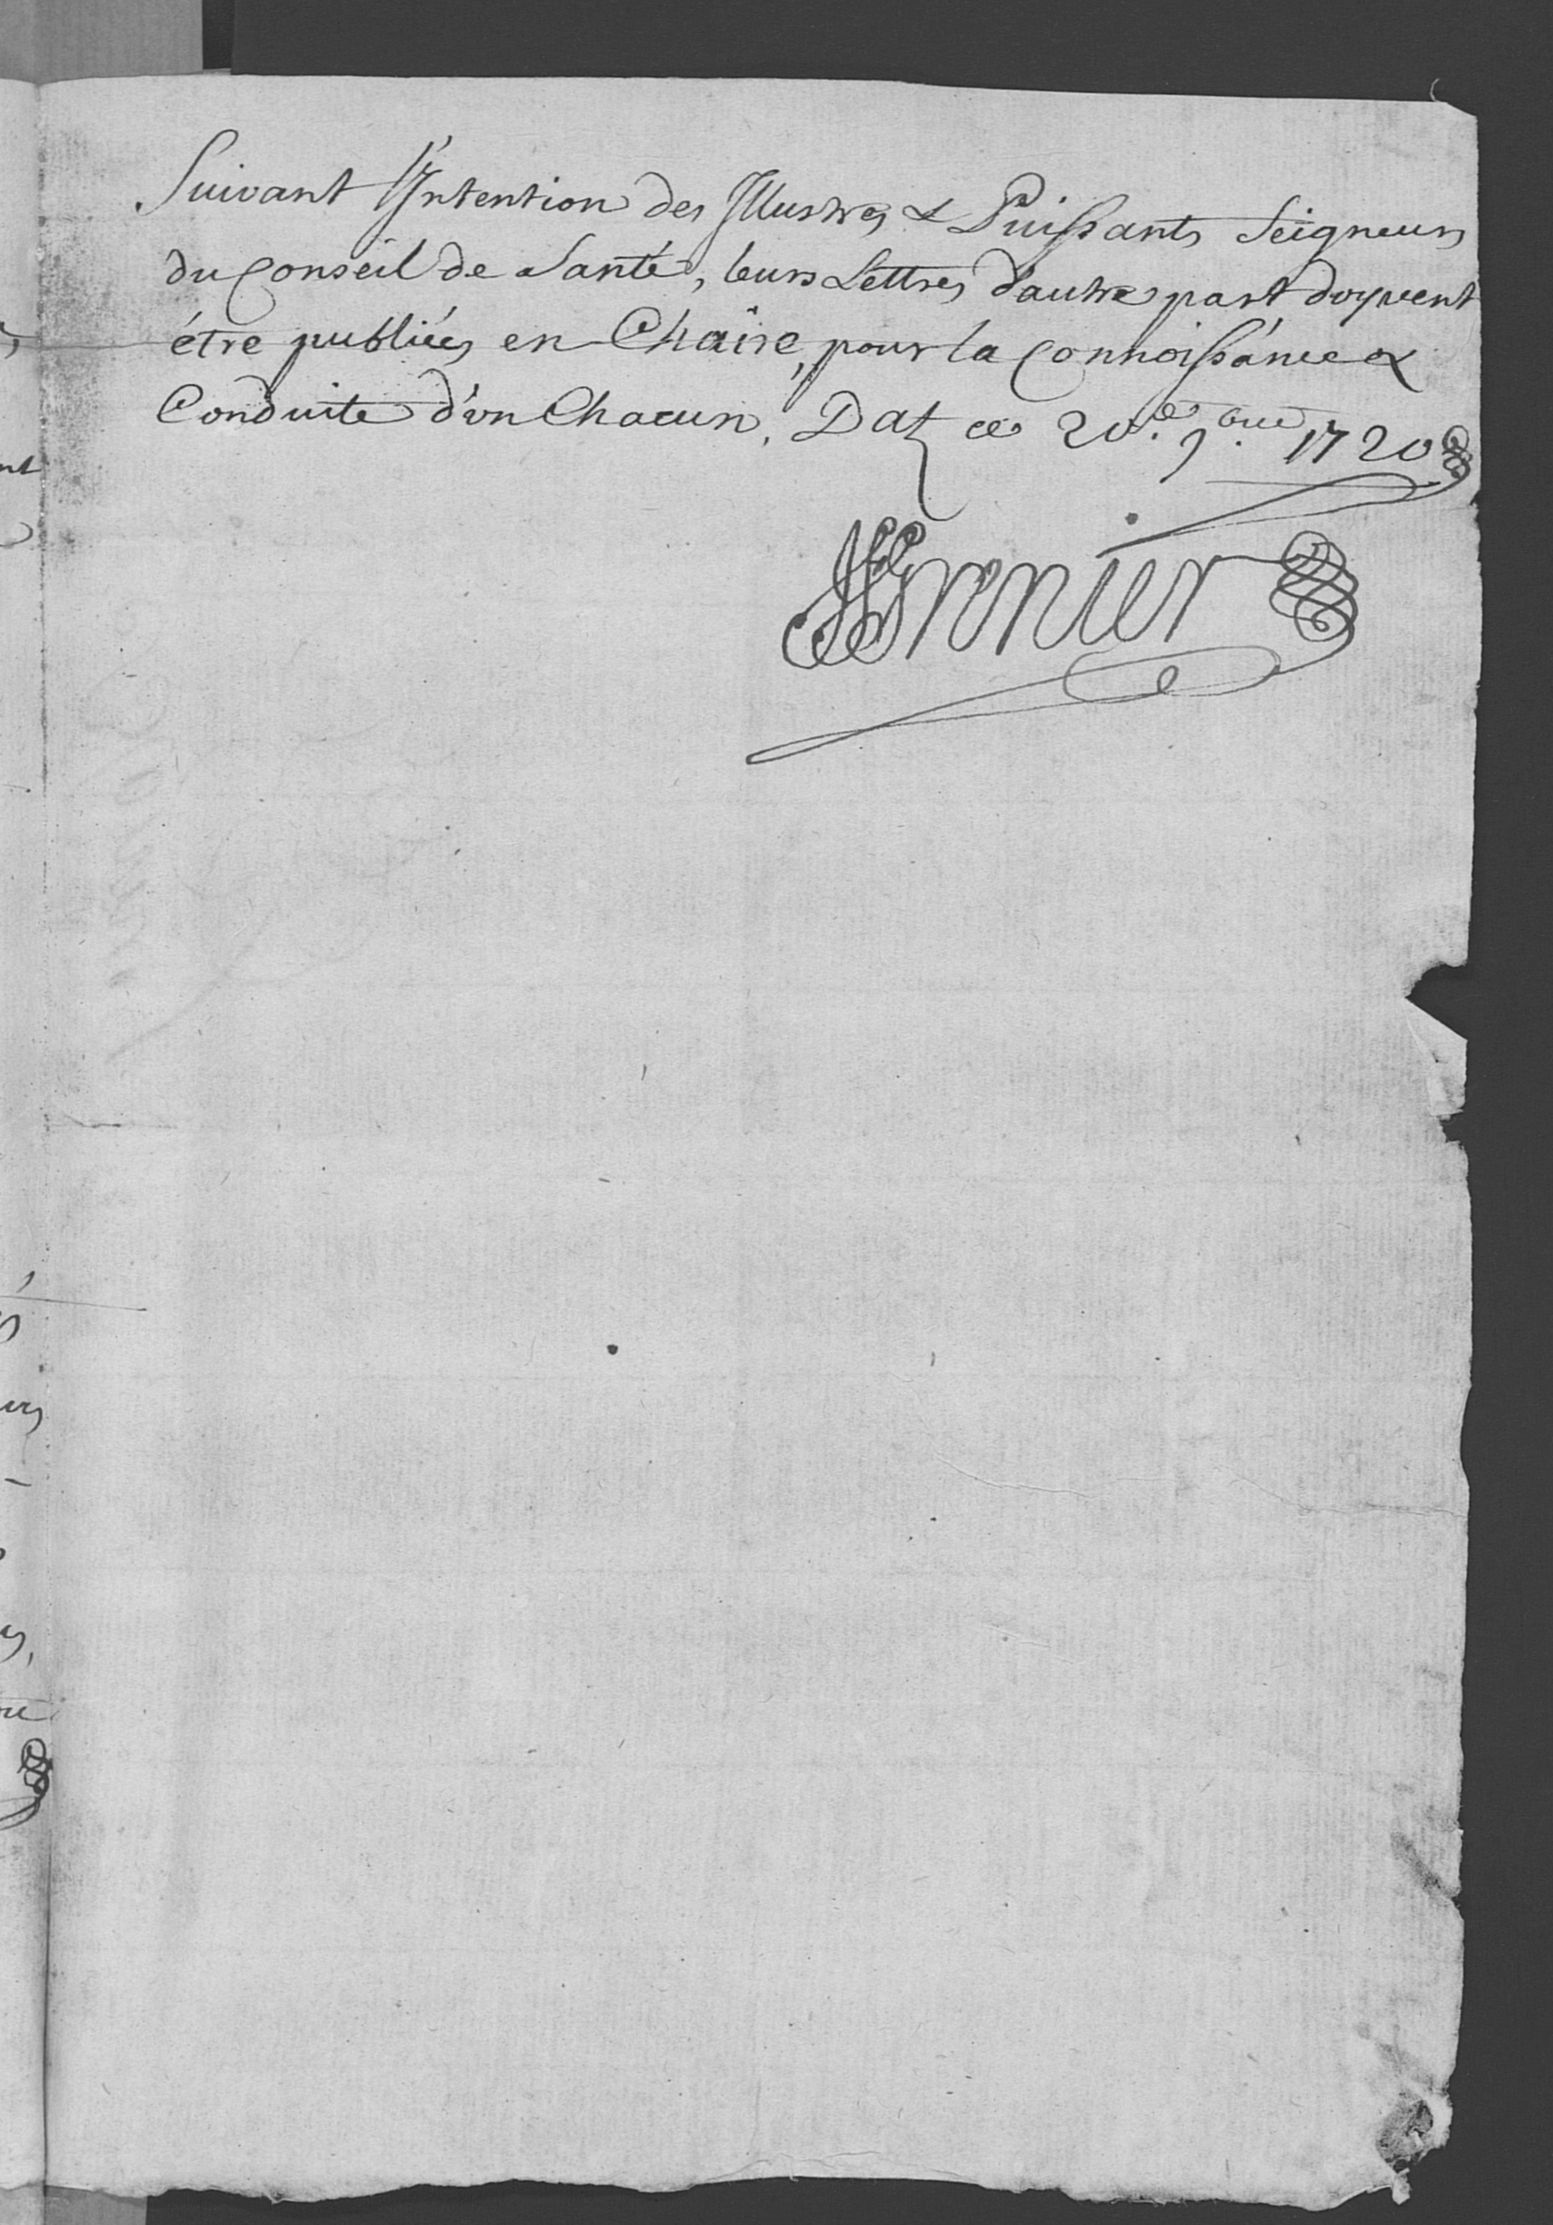 Suivant l'Intention des Illustres & Puissants Seigneurs
du Conseil de Santé, leurs Lettres d'autre part doyvent
être publiées en Chaire, pour la Connoissance &
Conduite d'vn Chacun. Dat ce 20.e 9.bre 1720